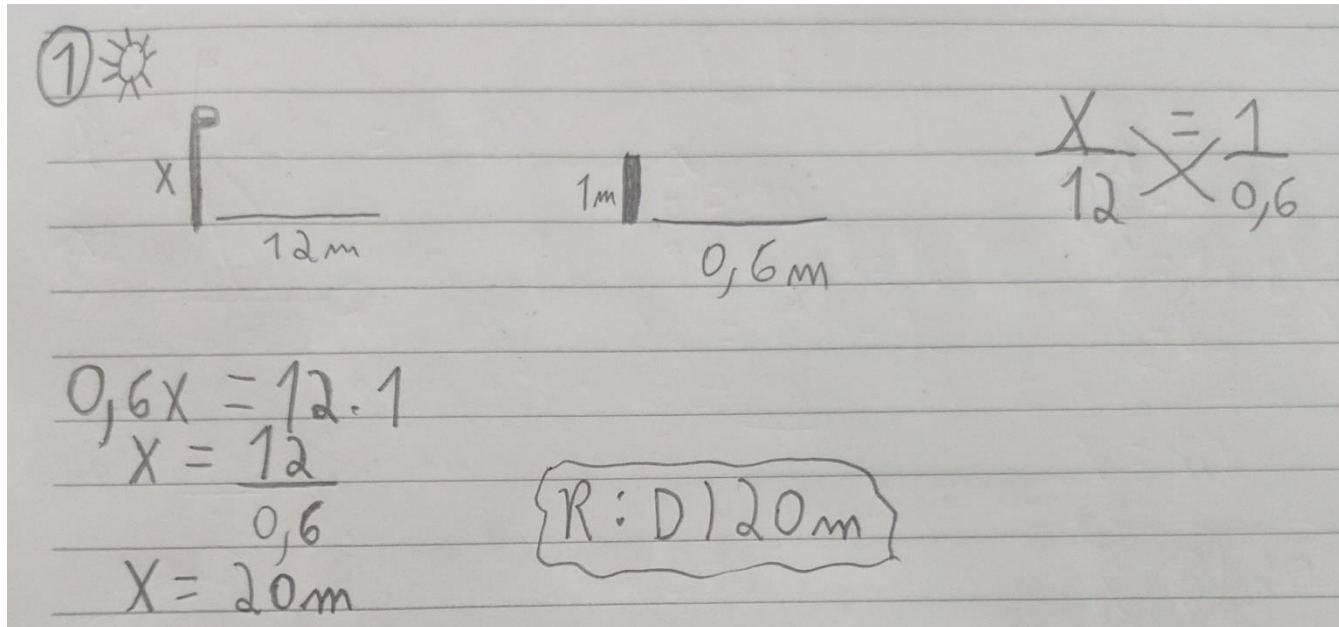 1
X
12m
1m
0,6m
X = 1
12 0,6
0,6X = 12.1
X = 12
0,6
X = 20m
R: D) 20m